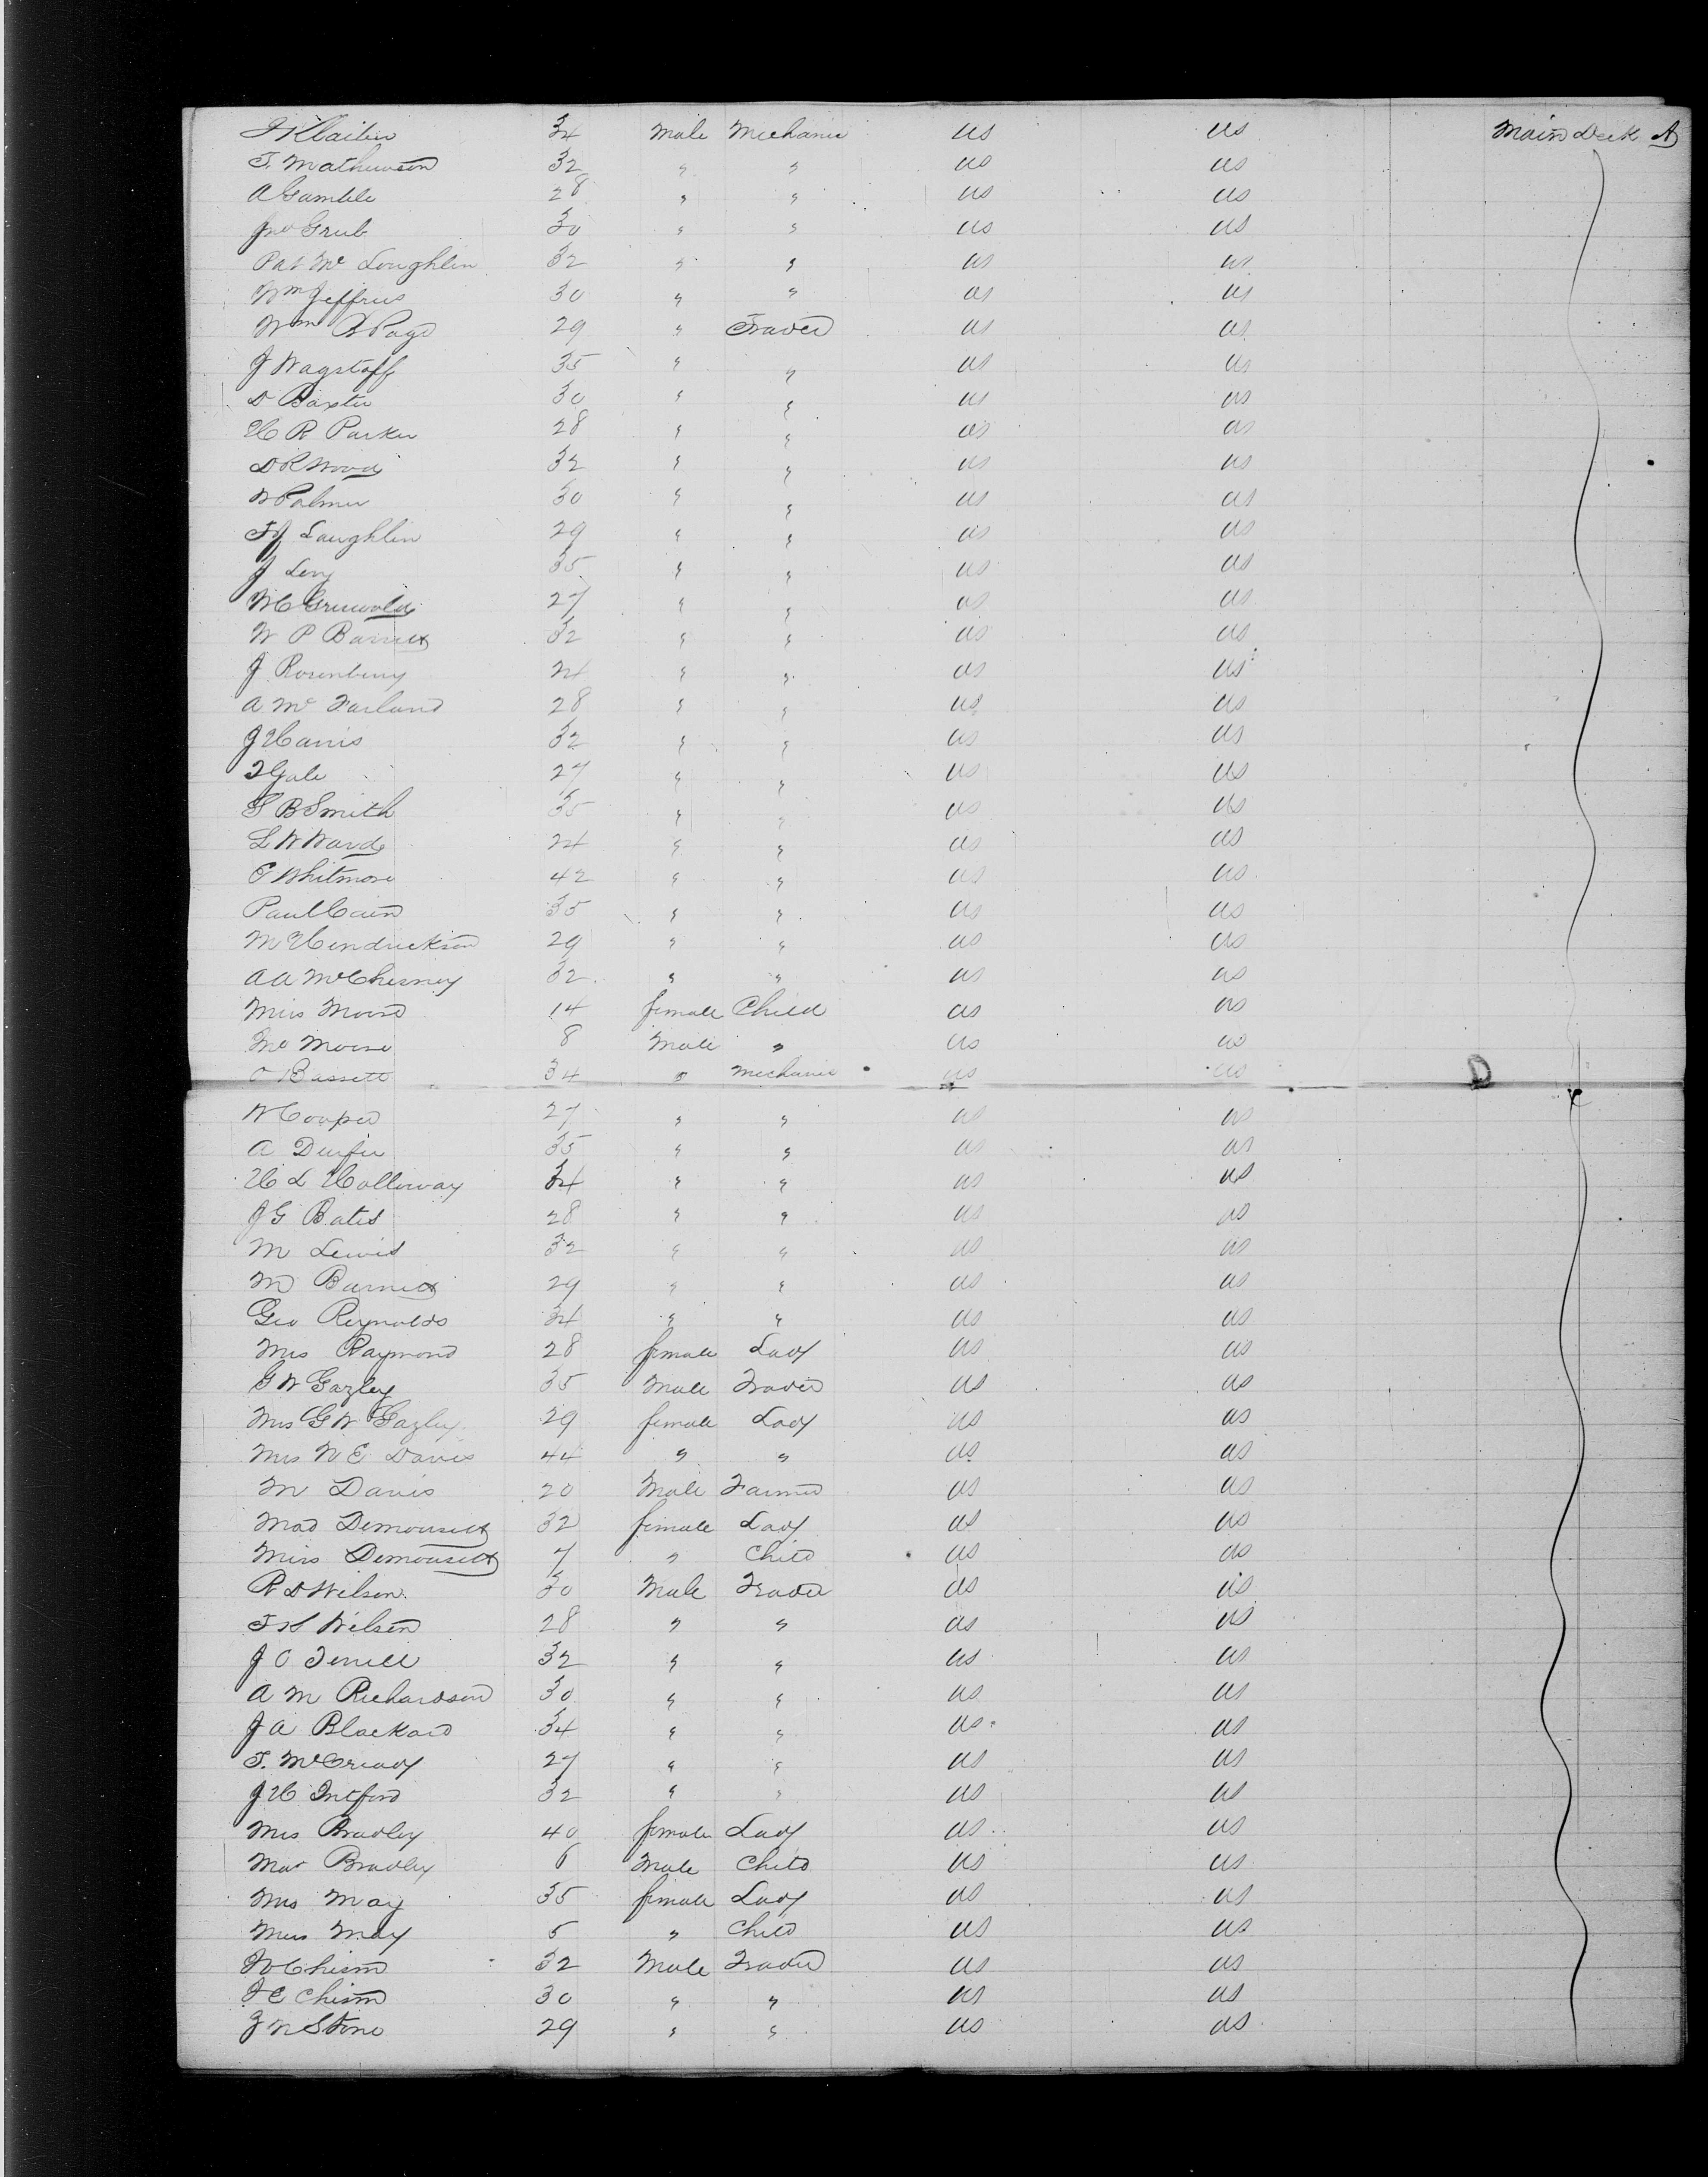 34 Male Mechanic US US Main Deck A
T. Mathewson 32 " " US US
A Gamble 28 " " US US
Jno Grub 30 " " US US
Pat Mc Loughlin 32 " " US US
Wm Jeffries 30 " " US US
Wm R Page 29 " Trader US US
J Wagstaff 35 " " US US
D Baxter 30 " " US US
H R Parker 28 " " US US
D R Wood 32 " " US US
W Palmer 30 " " US US
T J Laughlin 29 " " US US
J Levy 35 " " US US
W C Griswold 27 " " US US
W P Barrett 32 " " US US
J Rosenburg 24 " " US US
A Mc Farland 28 " " US US
J Harris 32 " " US US
T Gale 27 " " US US
S B Smith 35 " " US US
L W Ward 24 " " US US
C Whitmore 42 " " US US
Paul Cain 35 " " US US
M Hendrickson 29 " " US US
A A McChesney 32 " " US US
Miss Moore 14 female Child US US
Moore 8 Male " US US
O Bassett 34 " Mechanic US US D
W Cooper 27 " " US US
A Durfee 35 " " US US
H L Holloway 34 " " US US
J G Bates 28 " " US US
M Lewis 32 " " US US
M Burnett 29 " " US US
Geo Reynolds 34 " " US US
Mrs Raymond 28 female Lady US US
G W Gazley 35 Male Trader US US
Mrs G W Gazley 29 female Lady US US
Mrs N E Davis 44 " " US US
M Davis 20 Male Farmer US US
Mad Demousett 32 female Lady US US
Miss Demousett 7 " Child US US
R D Wilson 30 Male Trader US US
Wilson 28 " " US US
J O Terrill 32 " " US US
A M Richardson 30 " " US US
J A Blackard 34 " " US US
T. McCready 27 " " US US
J H 32 " " US US
Mrs Bradley 40 female Lady US US
Mas Bradley 6 Male Child US US
Mrs May 35 female Lady US US
Miss May 5 " Child US US
W Chism 32 Male Trader US US
J E Chism 30 " " US US
J W Stone 29 " " US US